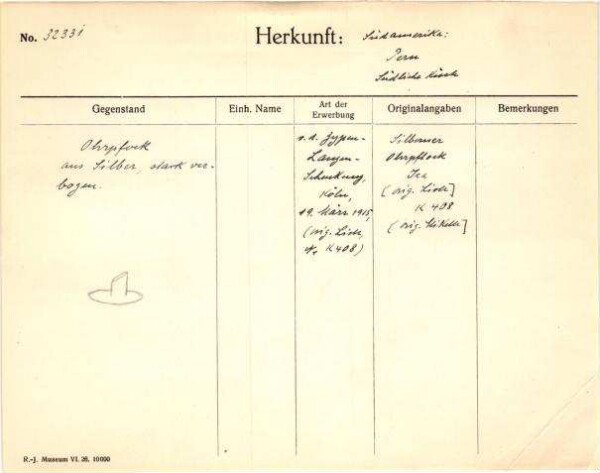 No. 32331
Herkunft: Südamerika:
Peru
Südliche Küste
Gegenstand
Einh. Name
Art der
Erwerbung
Originalangaben
Bemerkungen
Ohrpflock
aus Silber, stark ver-
bogen.
v. d. Zypen-
Langen-
Schenkung,
Köln,
19. März 1915,
(orig. Liste,
K 408)
Silberner
Ohrpflock
Ica
(orig. Liste]
K 408
(orig. Etikette]
R.-J. Museum VI. 26. 10000